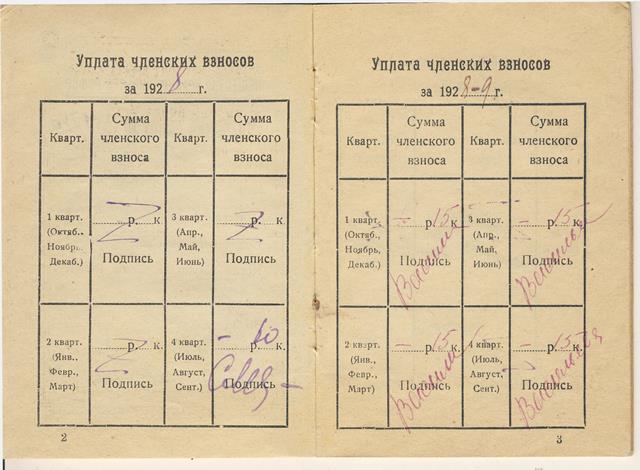 Уплата членских взносов
за 1928 г.
Кварт.
Сумма
членского
взноса
Кварт.
Сумма
членского
взноса
1 кварт.
(Октяб.,
Ноябрь,
Декаб.)
р. к
Подпись
3 кварт.
(Апр.,
Май,
Июнь)
р. к.
Подпись
2 кварт.
(Янв.,
Февр.,
Март)
р. к.
Подпись
4 кварт.
(Июль,
Август,
Сент.)
– р. 10 к.
Подпись
2
Уплата членских взносов
за 1928-9 г.
Кварт.
Сумма
членского
взноса
Кварт.
Сумма
членского
взноса
1 кварт.
(Октяб.,
Ноябрь,
Декаб.)
– р. 15 к.
Подпись
3 кварт.
(Апр.,
Май,
Июнь)
– р. 15 к.
Подпись
2 кварт.
(Янв.,
Февр.,
Март)
– р. 15 к.
Подпись
4 кварт.
(Июль,
Август,
Сент.)
– р. 15 к.
Подпись
3